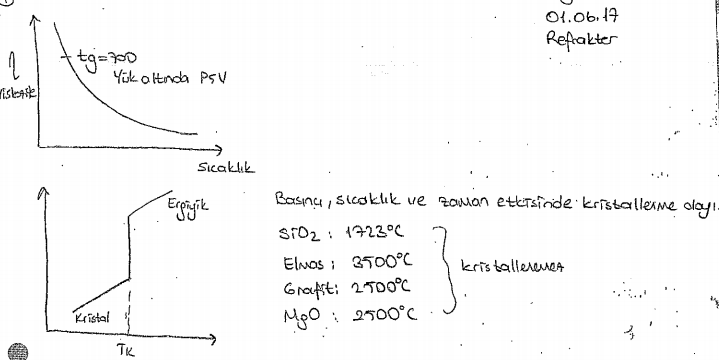 01.06.17
Refrakter
η
Viskozite
tg=700
Yük altında PSV
Sıcaklık
Ergiyik
Kristal
TK
Basınç, sıcaklık ve zaman etkisinde kristallenme olayı.
SiO2 : 1723°C
Elmas : 3500°C
Grafit : 2500°C
MgO : 2500°C
kristallenmez